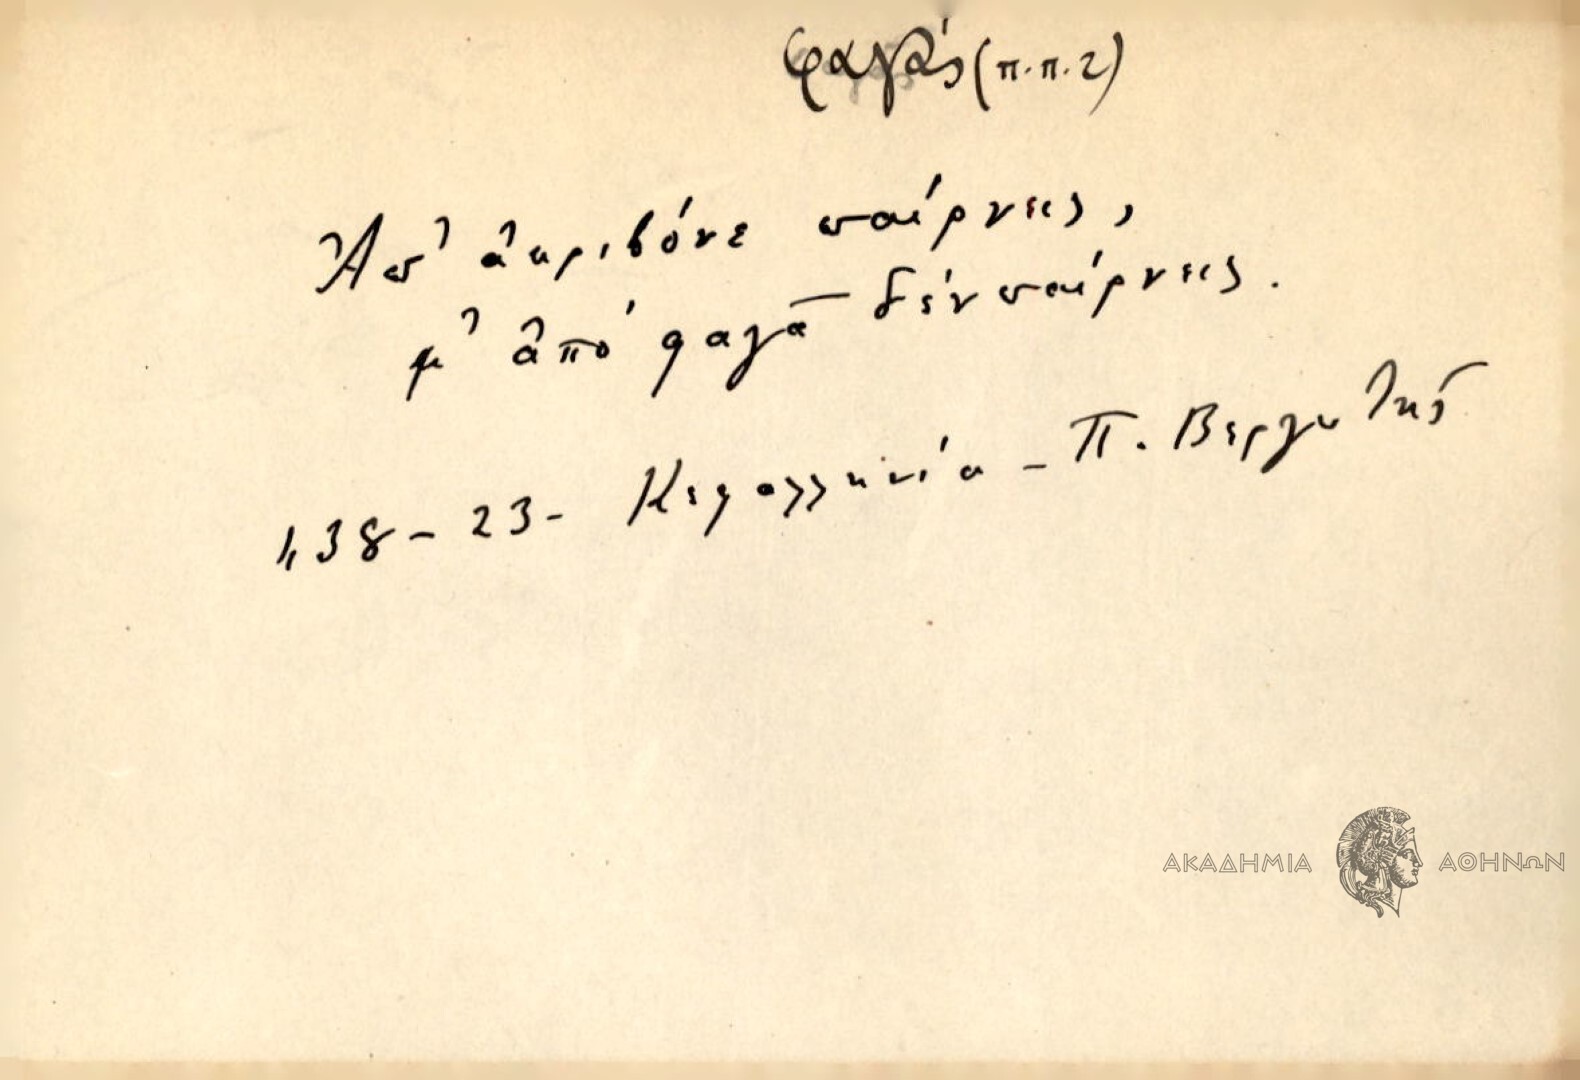 φαγάς (π.π. 2)
Ἀπ' ἀκριβόνε παίρνεις,
μ' ἀπό φαγᾶ δέν παίρνεις.
138 - 23 - Κεφαλληνία - Π. Βεργωτῆς
ΑΚΑΔΗΜΙΑ ΑΘΗΝΩΝ